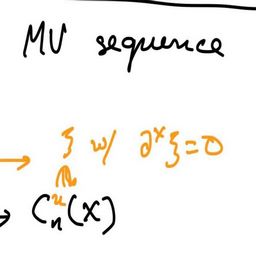 MV sequence
→ ξ w/ ∂ˣξ=0
→ Cₙᵘ(X)